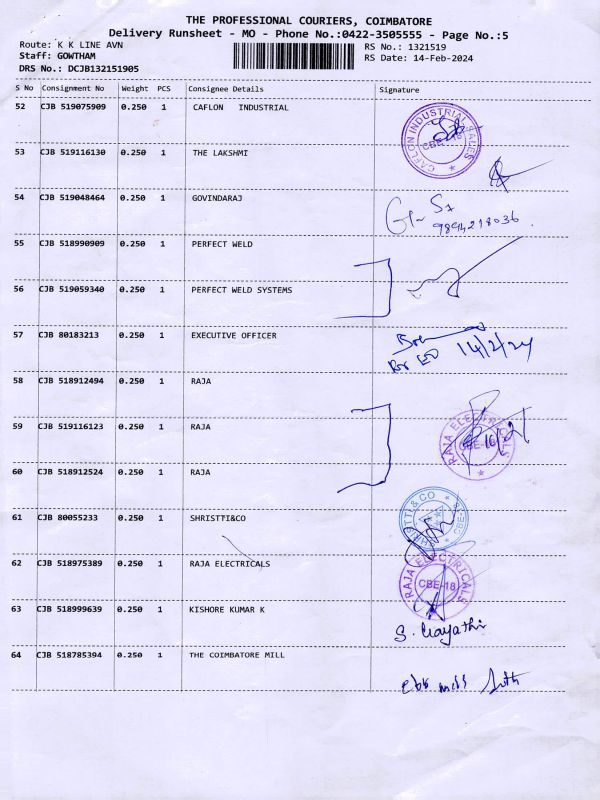 THE PROFESSIONAL COURIERS, COIMBATORE
Delivery Runsheet - MO - Phone No.:0422-3505555 - Page No.:5
Route: K K LINE AVN RS No.: 1321519
Staff: GOWTHAM RS Date: 14-Feb-2024
DRS No.: DCJB132151905
S No Consignment No Weight PCS Consignee Details Signature
52 CJB 519075909 0.250 1 CAFLON INDUSTRIAL
CAFLON INDUSTRIAL SALES
53 CJB 519116130 0.250 1 THE LAKSHMI
54 CJB 519048464 0.250 1 GOVINDARAJ
9894218036
55 CJB 518990909 0.250 1 PERFECT WELD
56 CJB 519059340 0.250 1 PERFECT WELD SYSTEMS
57 CJB 80183213 0.250 1 EXECUTIVE OFFICER
14/2/24
58 CJB 518912494 0.250 1 RAJA
59 CJB 519116123 0.250 1 RAJA
RAJA ELECTRICALS
60 CJB 518912524 0.250 1 RAJA
61 CJB 80055233 0.250 1 SHRISTTI&CO
SHRISTTI & CO
62 CJB 518975389 0.250 1 RAJA ELECTRICALS
RAJA ELECTRICALS
CBE-18
63 CJB 518999639 0.250 1 KISHORE KUMAR K
64 CJB 518785394 0.250 1 THE COIMBATORE MILL